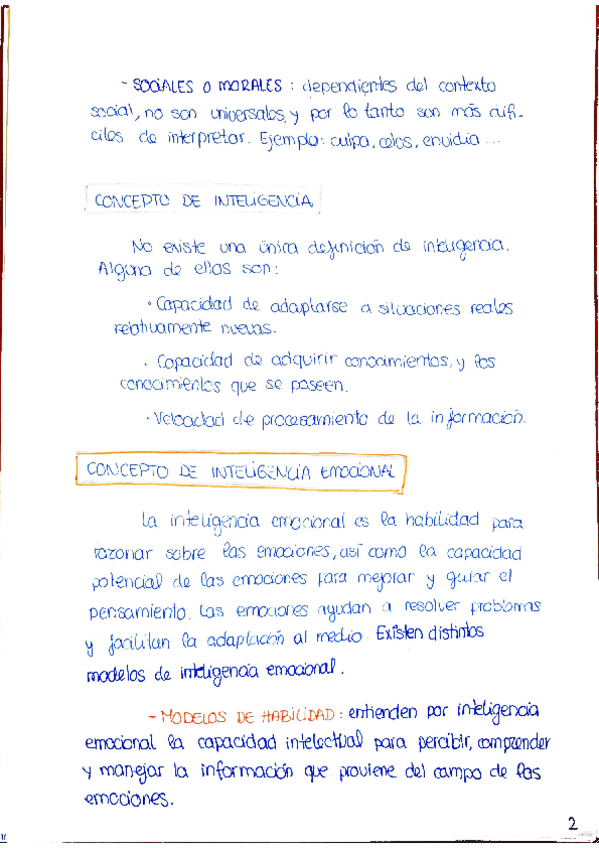 - SOCIALES O MORALES : dependientes del contexto
social, no son universales, y por lo tanto son más difí-
ciles de interpretar. Ejemplo: culpa, celos, envidia ...
CONCEPTO DE INTELIGENCIA
No existe una única definición de inteligencia.
Alguna de ellas son:
· Capacidad de adaptarse a situaciones reales
relativamente nuevas.
· Capacidad de adquirir conocimientos, y los
conocimientos que se poseen.
· Velocidad de procesamiento de la información.
CONCEPTO DE INTELIGENCIA EMOCIONAL
La inteligencia emocional es la habilidad para
razonar sobre las emociones, así como la capacidad
potencial de las emociones para mejorar y guiar el
pensamiento. Las emociones ayudan a resolver problemas
y facilitan la adaptación al medio. Existen distintos
modelos de inteligencia emocional.
- MODELOS DE HABILIDAD : entienden por inteligencia
emocional la capacidad intelectual para percibir, comprender
y manejar la información que proviene del campo de las
emociones.
2